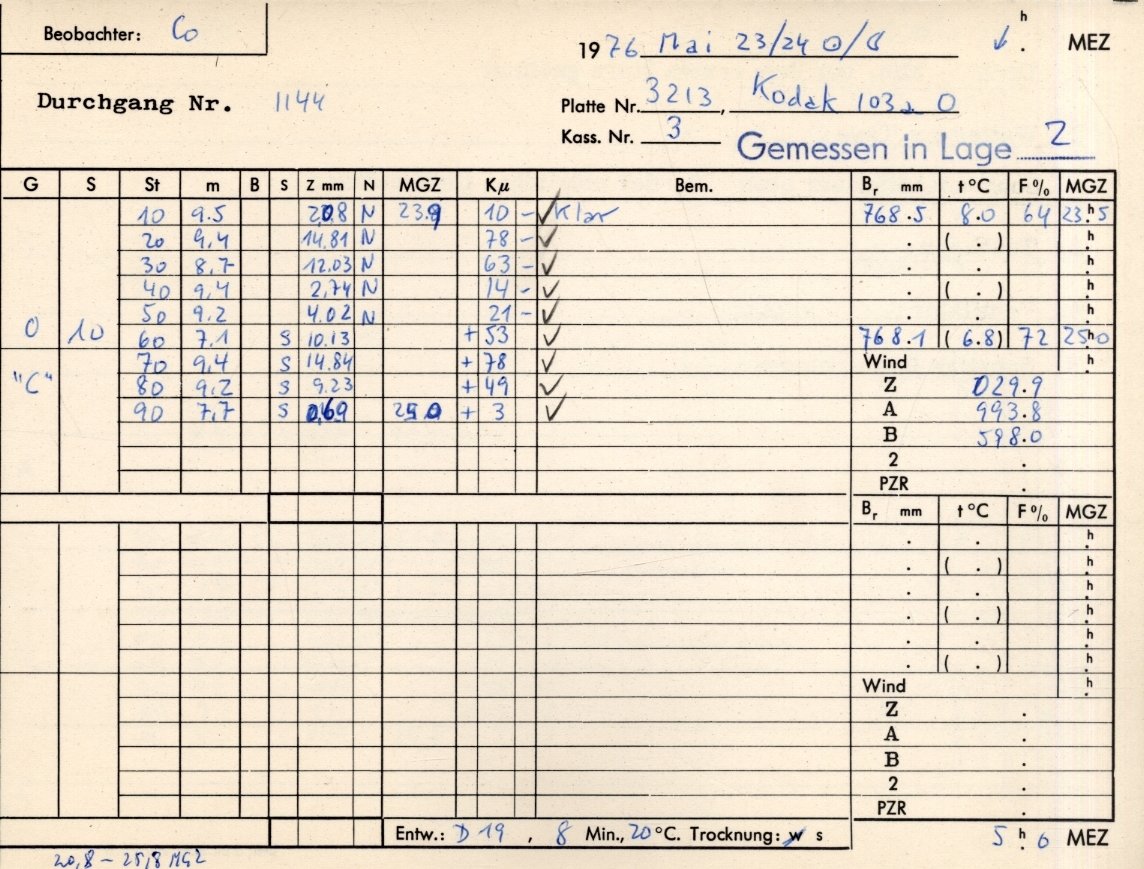 Beobachter: Co
1976 Mai 23/24 O/C h . MEZ
Durchgang Nr. 1144
Platte Nr. 3213, Kodak 103a O
Kass. Nr. 3
Gemessen in Lage 2
G S St m B S Z mm N MGZ Kµ Bem. Br mm t °C F % MGZ
10 9.5 2,08 N 23.9 10 - ✓ Klar 768.5 8.0 64 23.h5
20 9,4 14.81 N 78 - ✓ . ( . ) h
30 8,7 12.03 N 63 - ✓ . . h
40 9,4 2,74 N 14 - ✓ . ( . ) h
50 9.2 4.02 N 21 - ✓ . . h
O 10 60 7.1 S 10.13 + 53 ✓ 768.1 ( 6.8 ) 72 25h0
70 9,4 S 14.84 + 78 ✓ Wind h
"C" 80 9,2 S 9.23 + 49 ✓ Z 029.9
90 7,7 S 0,69 25.0 + 3 ✓ A 993.8
B 598.0
2 .
PZR .
Br mm t °C F % MGZ
. . h
. ( . ) h
. . h
. ( . ) h
. . h
. ( . ) h
Wind h
Z .
A .
B .
2 .
PZR .
Entw.: D 19 , 8 Min., 20 °C. Trocknung: w s 5 h 0 MEZ
20,8 - 25,8 MGZ